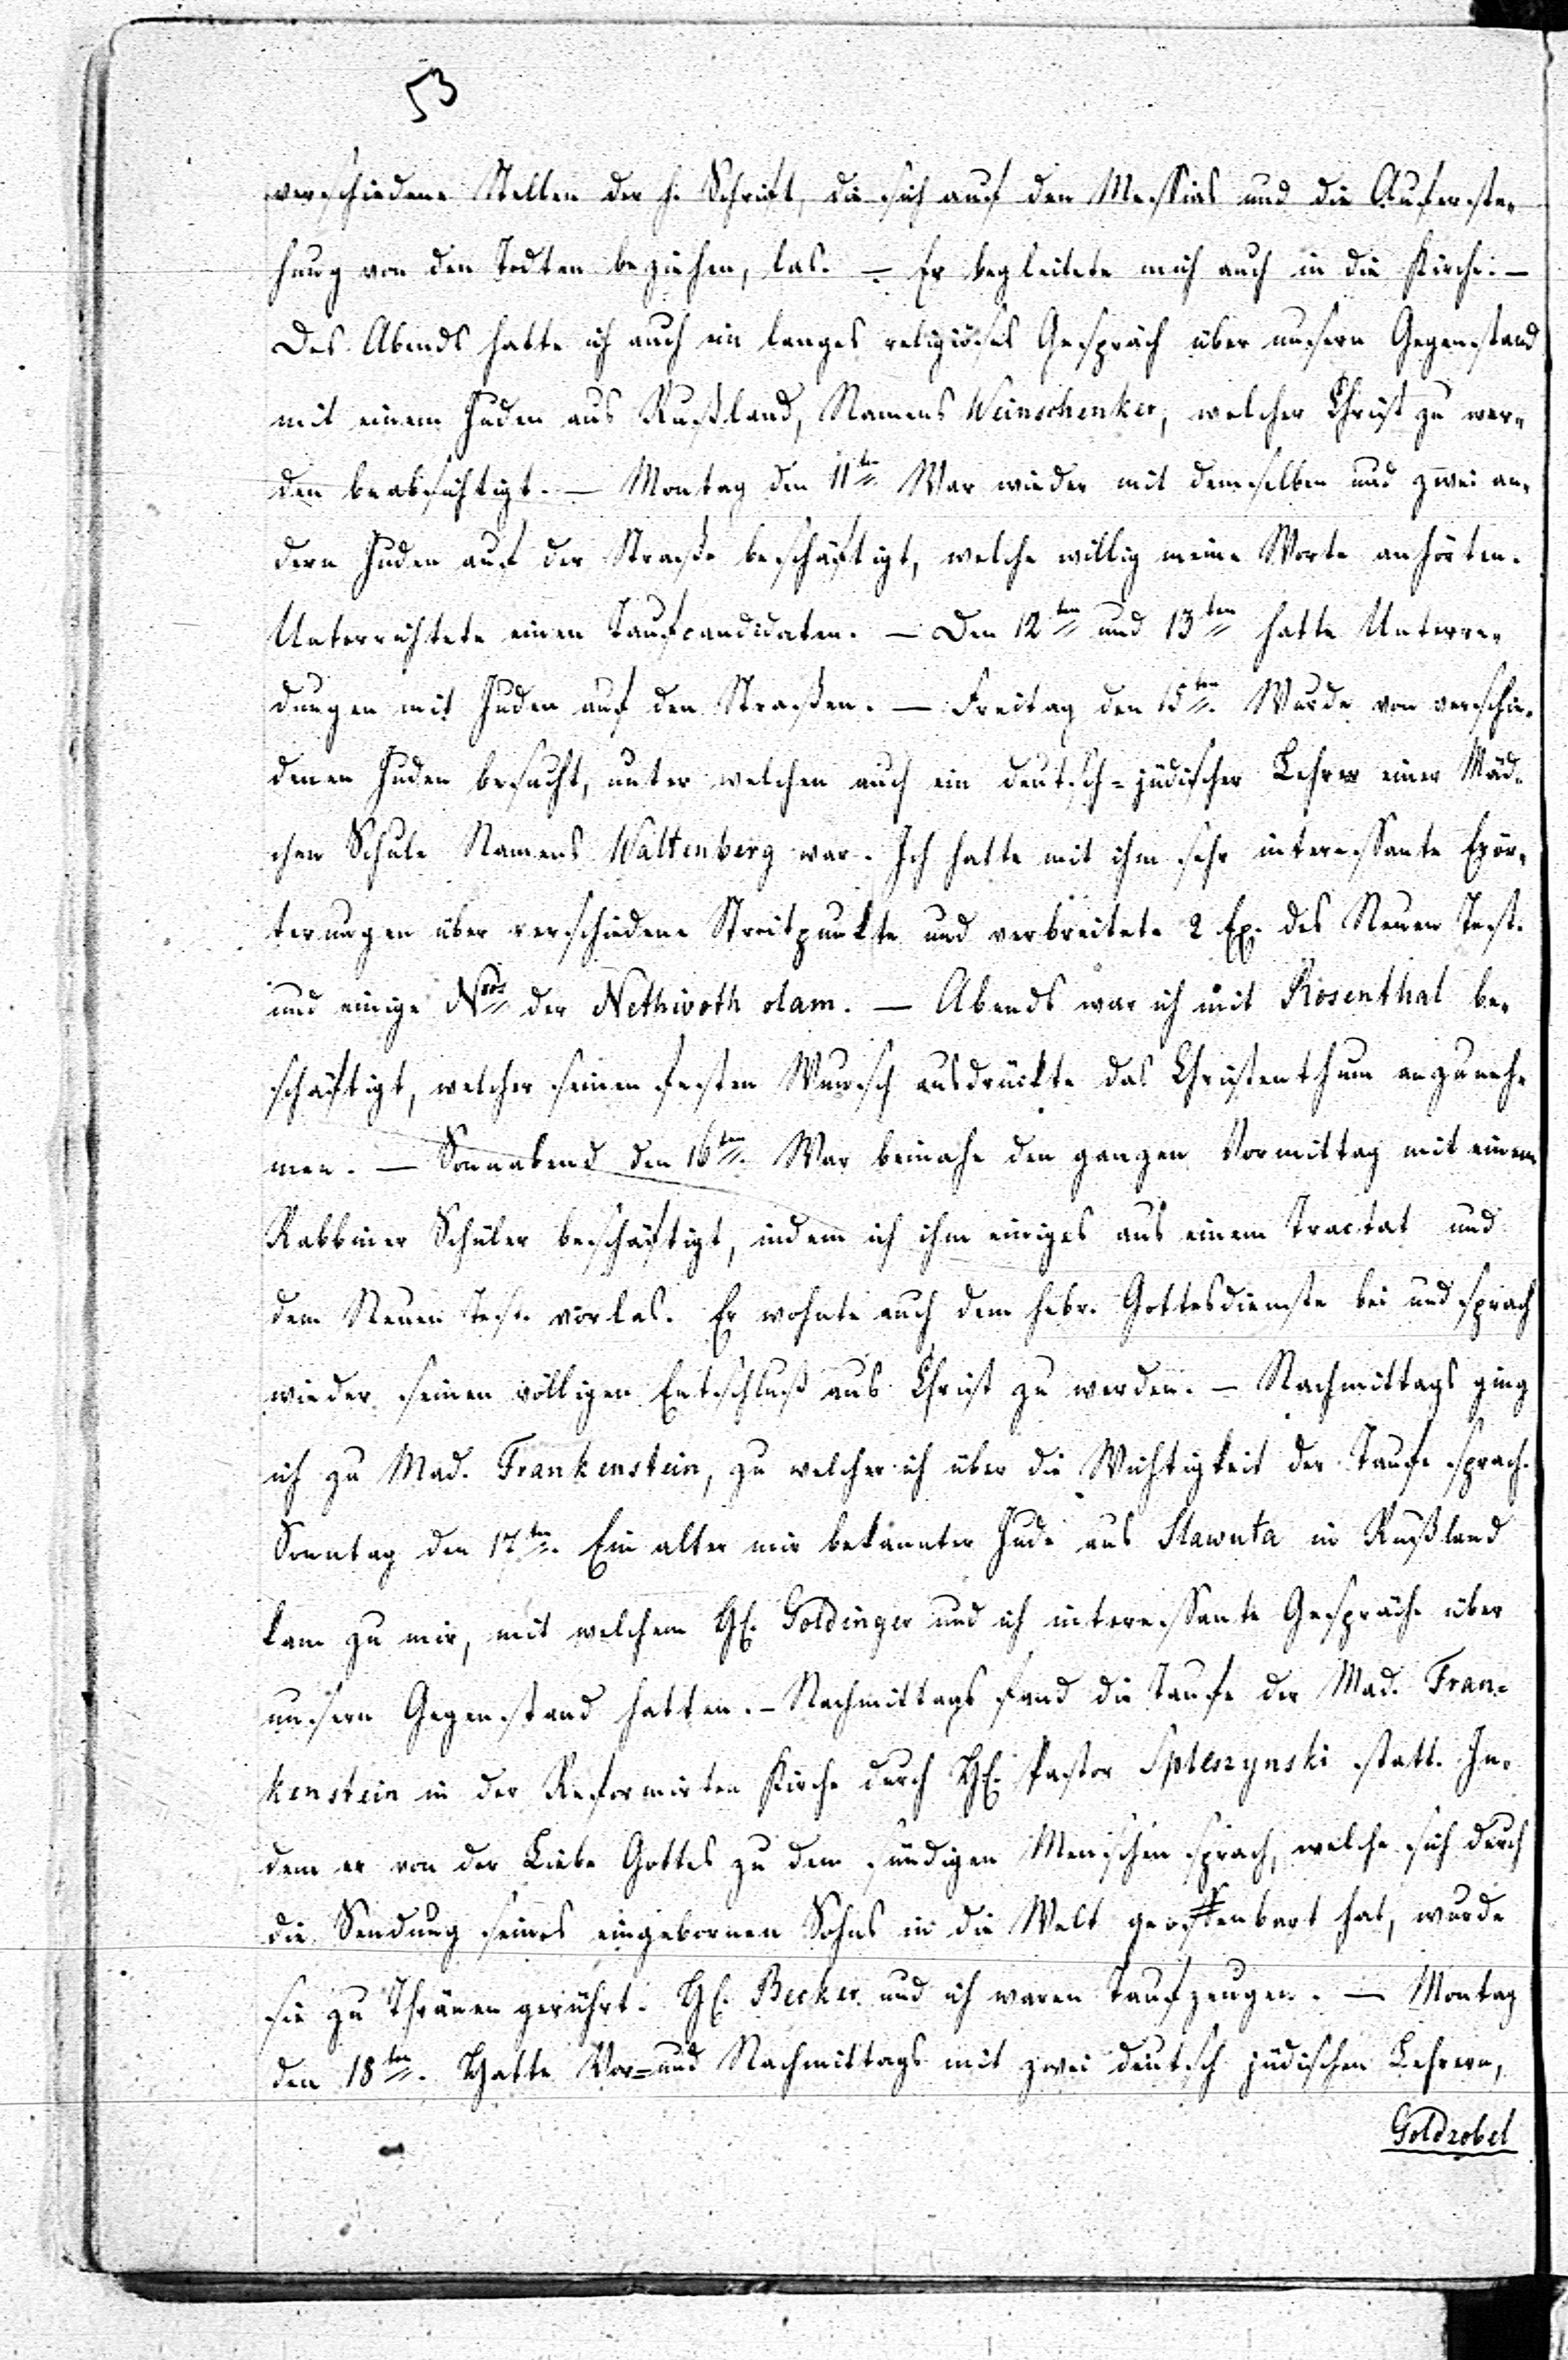 53
verschiedene Stellen der h. Schrift, die sich auf den Messias und die Auferste-
hung von den Todten beziehen, las. – Er begleitete mich auch in die Kirche. –
Des Abends hatte ich auch ein langes religiöses Gespräch über unsern Gegenstand
mit einem Juden aus Rußland, Namens Weinschenker, welcher Christ zu wer-
den beabsichtigt. – Montag den 11ten War wieder mit demselben und zwei an-
dern Juden auf der Straße beschäftigt, welche willig meine Worte anhörten.
Unterrichtete einen Taufcandidaten. – Den 12ten und 13ten hatte Unterre-
dungen mit Juden auf den Straßen. – Freitag den 15ten. Wurde von verschie-
denen Juden besucht, unter welchen auch ein deutsch-jüdischer Lehrer einer Mäd-
chen Schule Namens Waltenberg war. Ich hatte mit ihm sehr interessante Erör-
terungen über verschiedene Streitpunkte und verbreitete 2 Ex. des Neuen Test.
und einige Nros der Nethivoth olam. – Abends war ich mit Rosenthal be-
schäftigt, welcher seinen festen Wunsch ausdrückte das Christenthum anzuneh-
men. – Sonnabend den 16ten. War beinahe den ganzen Vormittag mit einem
Rabbiner Schüler beschäftigt, indem ich ihm einiges aus einem Tractat und
dem Neuen Test. vorlas. Er wohnte auch dem hebr. Gottesdienste bei und sprach
wieder seinen völligen Entschluß aus Christ zu werden. – Nachmittags ging
ich zu Mad. Frankenstein, zu welcher ich über die Wichtigkeit der Taufe sprach.
Sonntag den 17ten. Ein alter mir bekannter Jude aus Slawuta in Rußland
kam zu mir, mit welchem H. Goldinger und ich interessante Gespräche über
unsern Gegenstand hatten. – Nachmittags fand die Taufe der Mad. Fran-
kenstein in der Reformirten Kirche durch H. Pastor Spleszynski statt. In-
dem er von der Liebe Gottes zu dem sündigen Menschen sprach, welche sich durch
die Sendung seines eingebornen Sohns in die Welt geoffenbart hat, wurde
sie zu Thränen gerührt. H. Becker und ich waren Taufzeugen. – Montag
den 18ten. Hatte Vor- und Nachmittags mit zwei deutsch jüdischen Lehrern,
Goldzobel